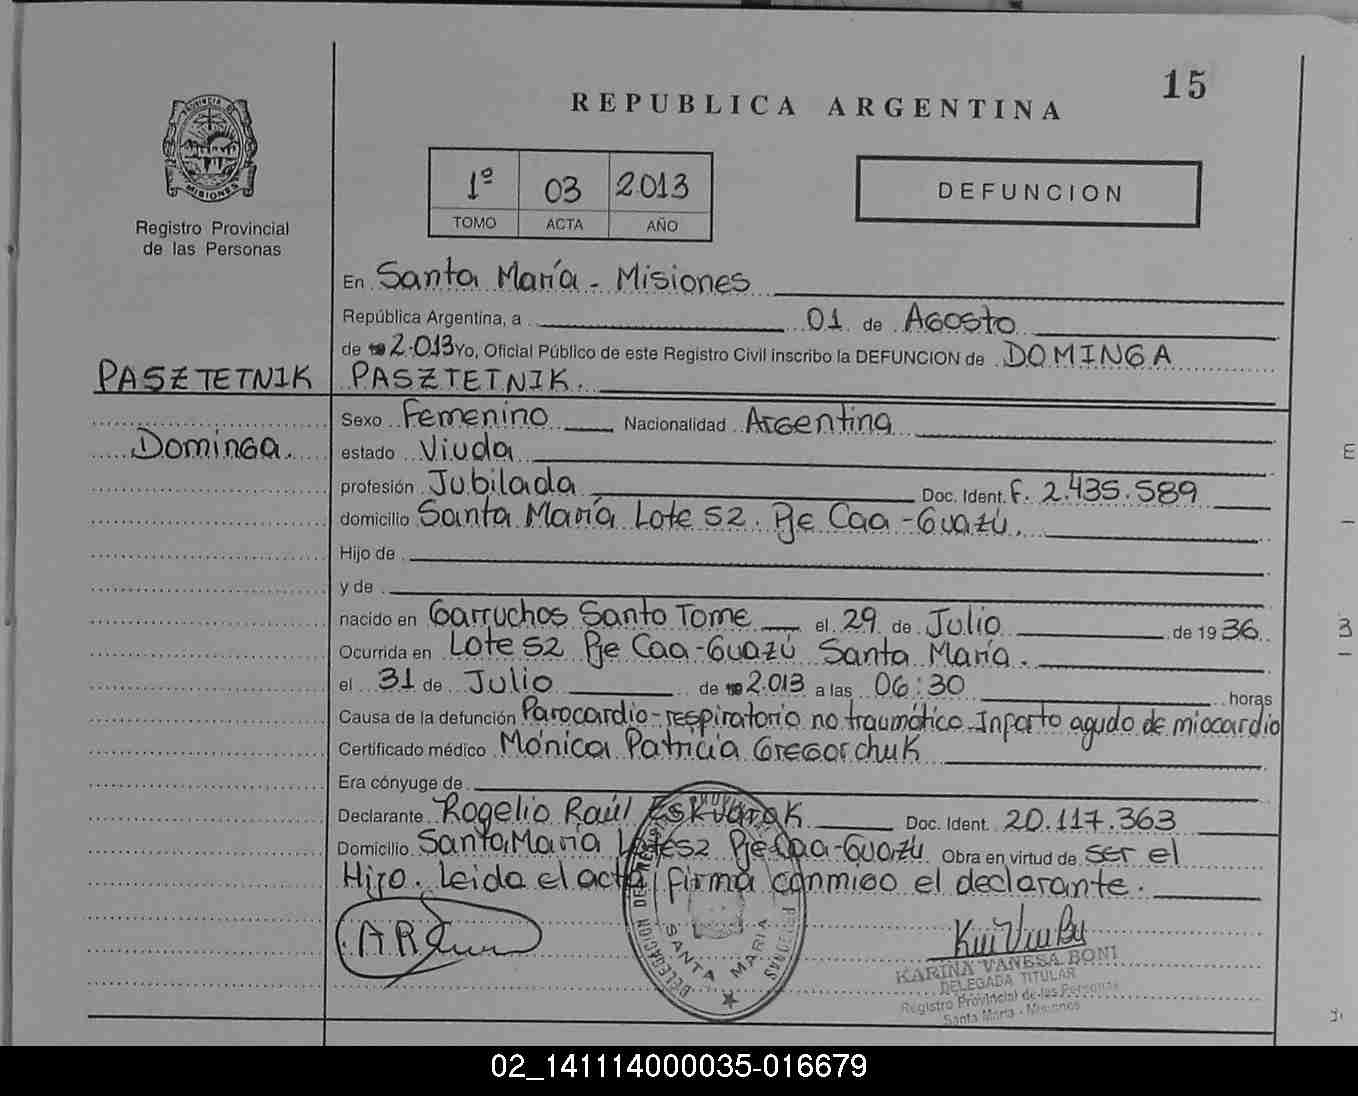 15
REPUBLICA ARGENTINA
PROVINCIA DE
MISIONES
Registro Provincial
de las Personas
1º 03 2013
TOMO ACTA AÑO
DEFUNCION
En Santa María - Misiones
República Argentina, a 01 de Agosto
de 2.013 Yo, Oficial Público de este Registro Civil inscribo la DEFUNCION de DOMINGA
PASZTETNIK PASZTETNIK.
Sexo Femenino Nacionalidad Argentina
Dominga. estado Viuda
profesión Jubilada Doc. Ident. F. 2.435.589
domicilio Santa María Lote 52. Pje Caa-Guazú.
Hijo de
y de
nacido en Garruchos Santo Tome el 29 de Julio de 1936
Ocurrida en Lote 52 Pje Caa-Guazú Santa María.
el 31 de Julio de 2.013 a las 06:30 horas
Causa de la defunción Parocardio-respiratorio no traumático-Infarto agudo de miocardio
Certificado médico Mónica Patricia Gregorchuk
Era cónyuge de
Declarante Rogelio Raúl Eskudrak Doc. Ident. 20.117.363
Domicilio Santa María Lote 52 Pje Caa-Guazú Obra en virtud de ser el
Hijo. Leida el acta firma conmigo el declarante.
DELEGACION DE
SANTA MARIA
KARINA VANESA BONI
DELEGADA TITULAR
Registro Provincial de las Personas
Santa María - Misiones
02_141114000035-016679